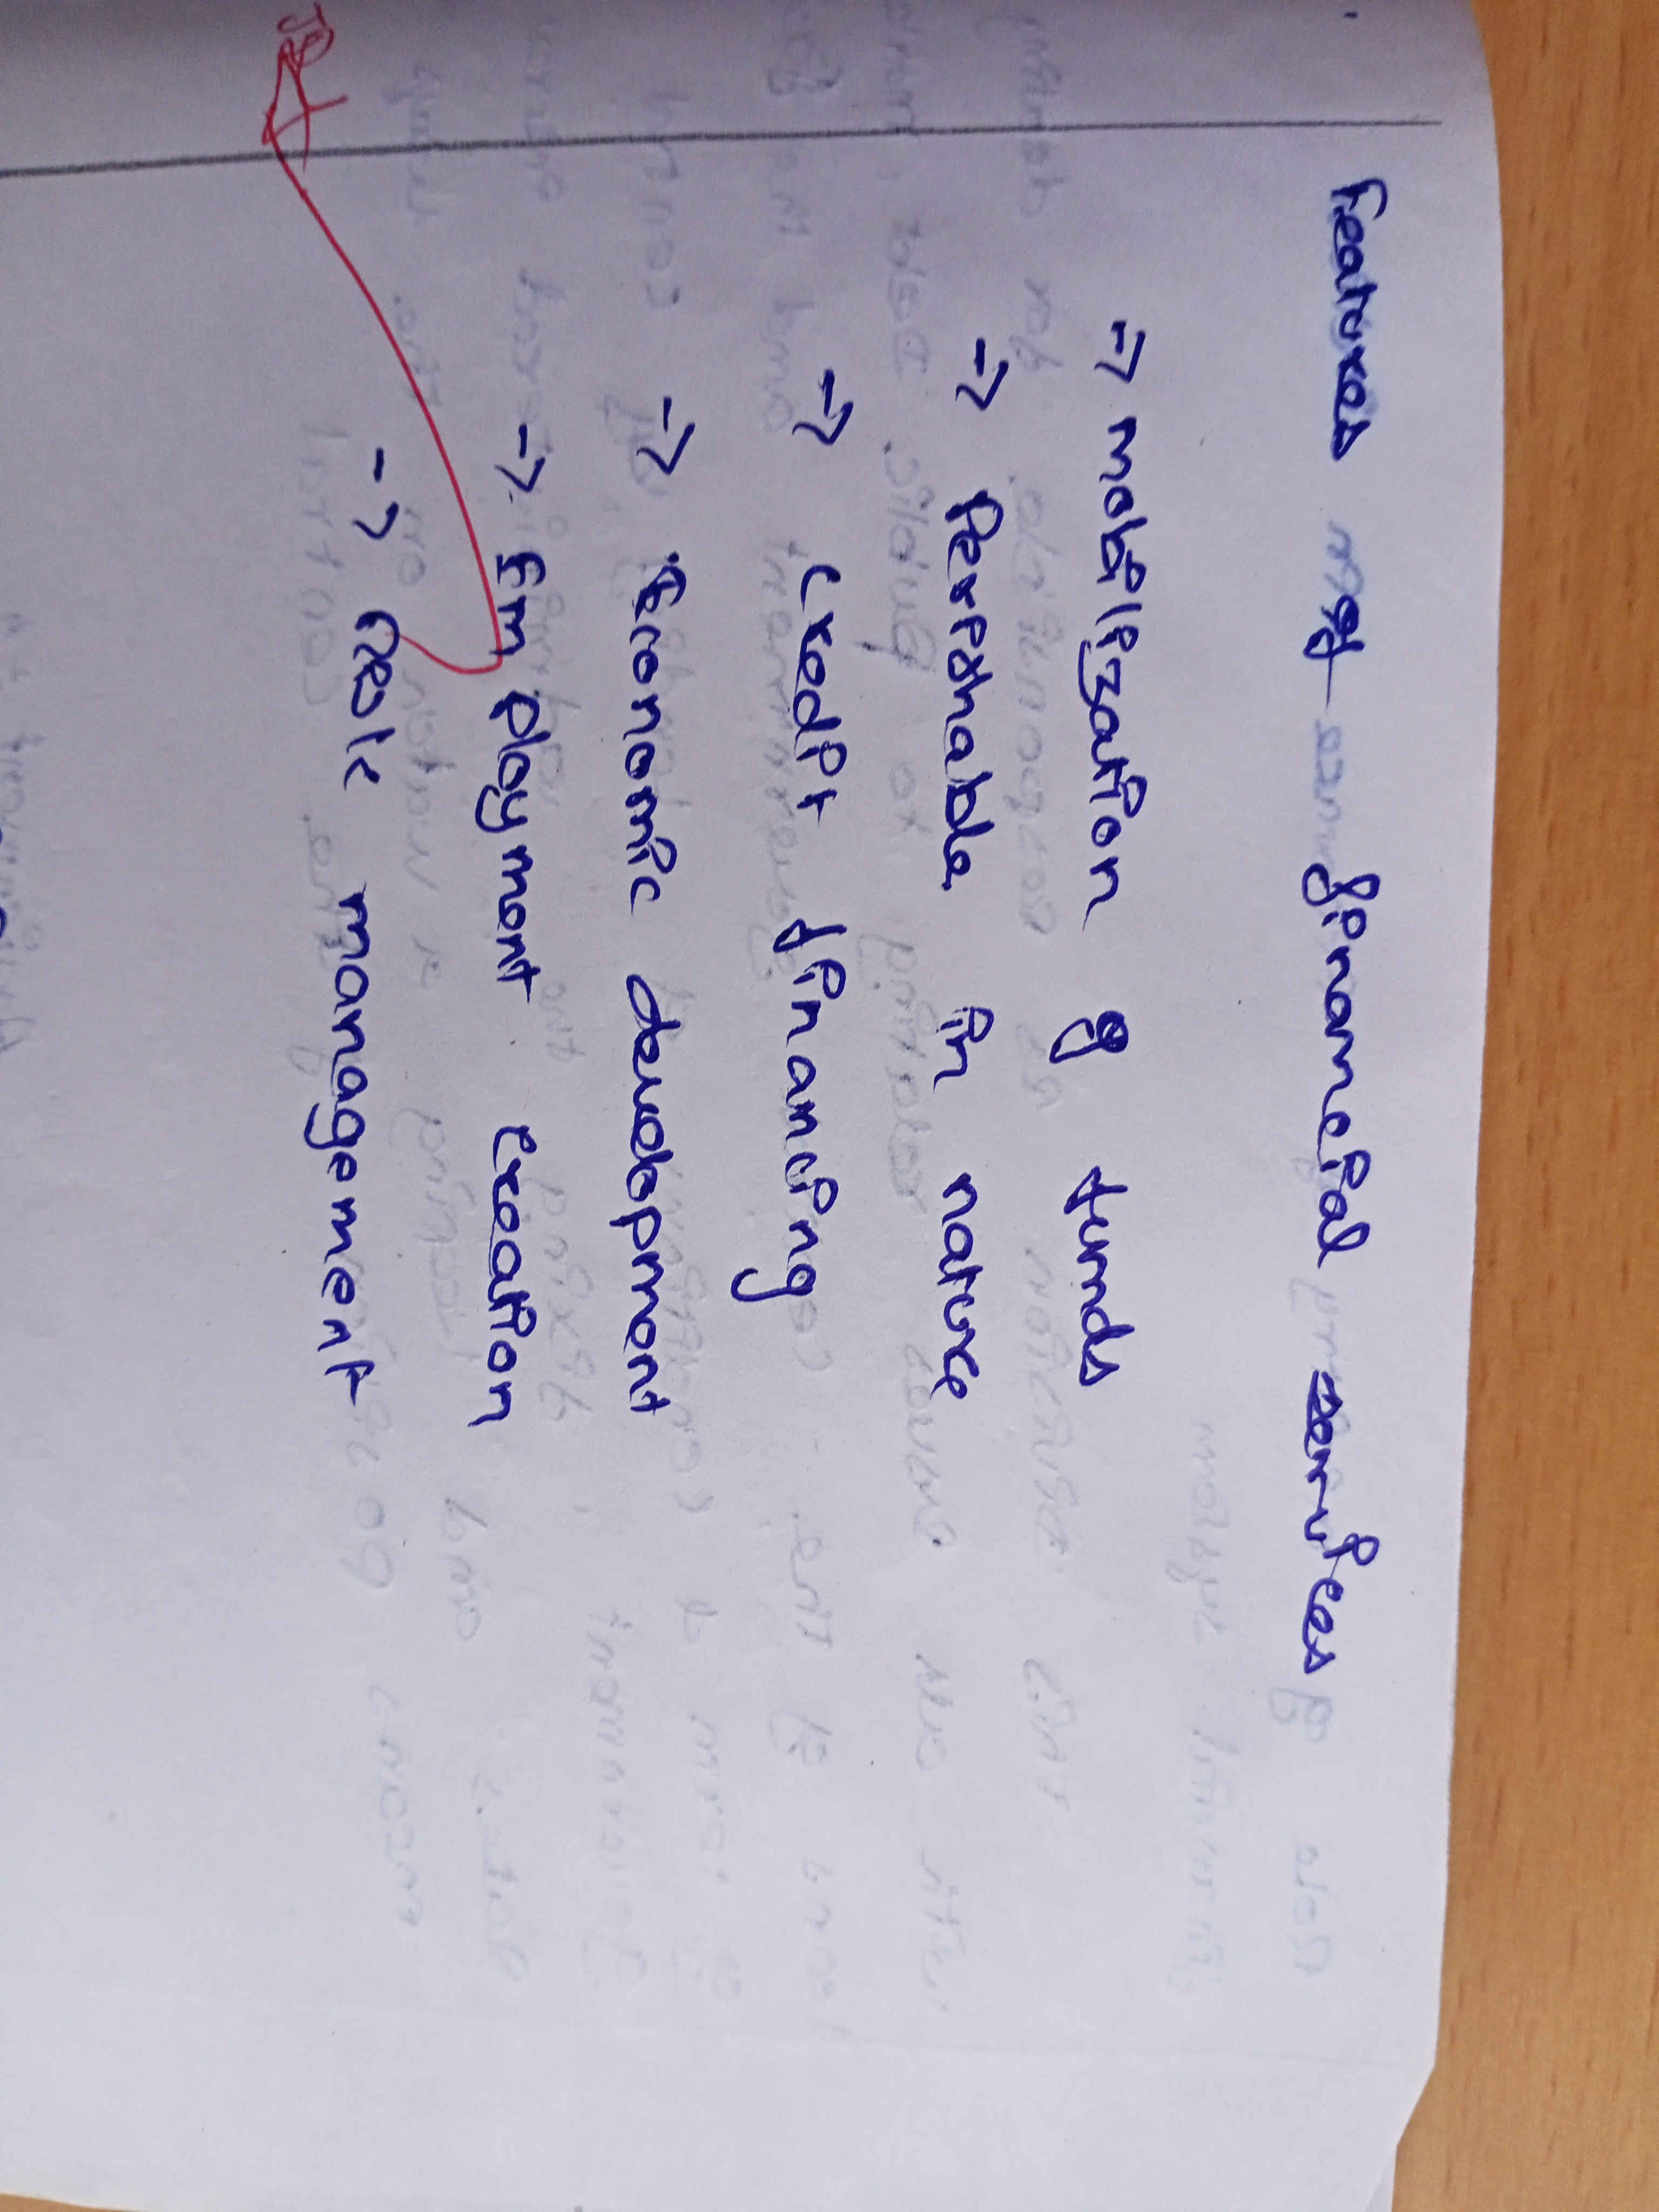 Features of financial services
→ mobilization of funds
→ Perishable in nature
→ Credit financing
→ Economic development
→ Employment creation
→ Risk management